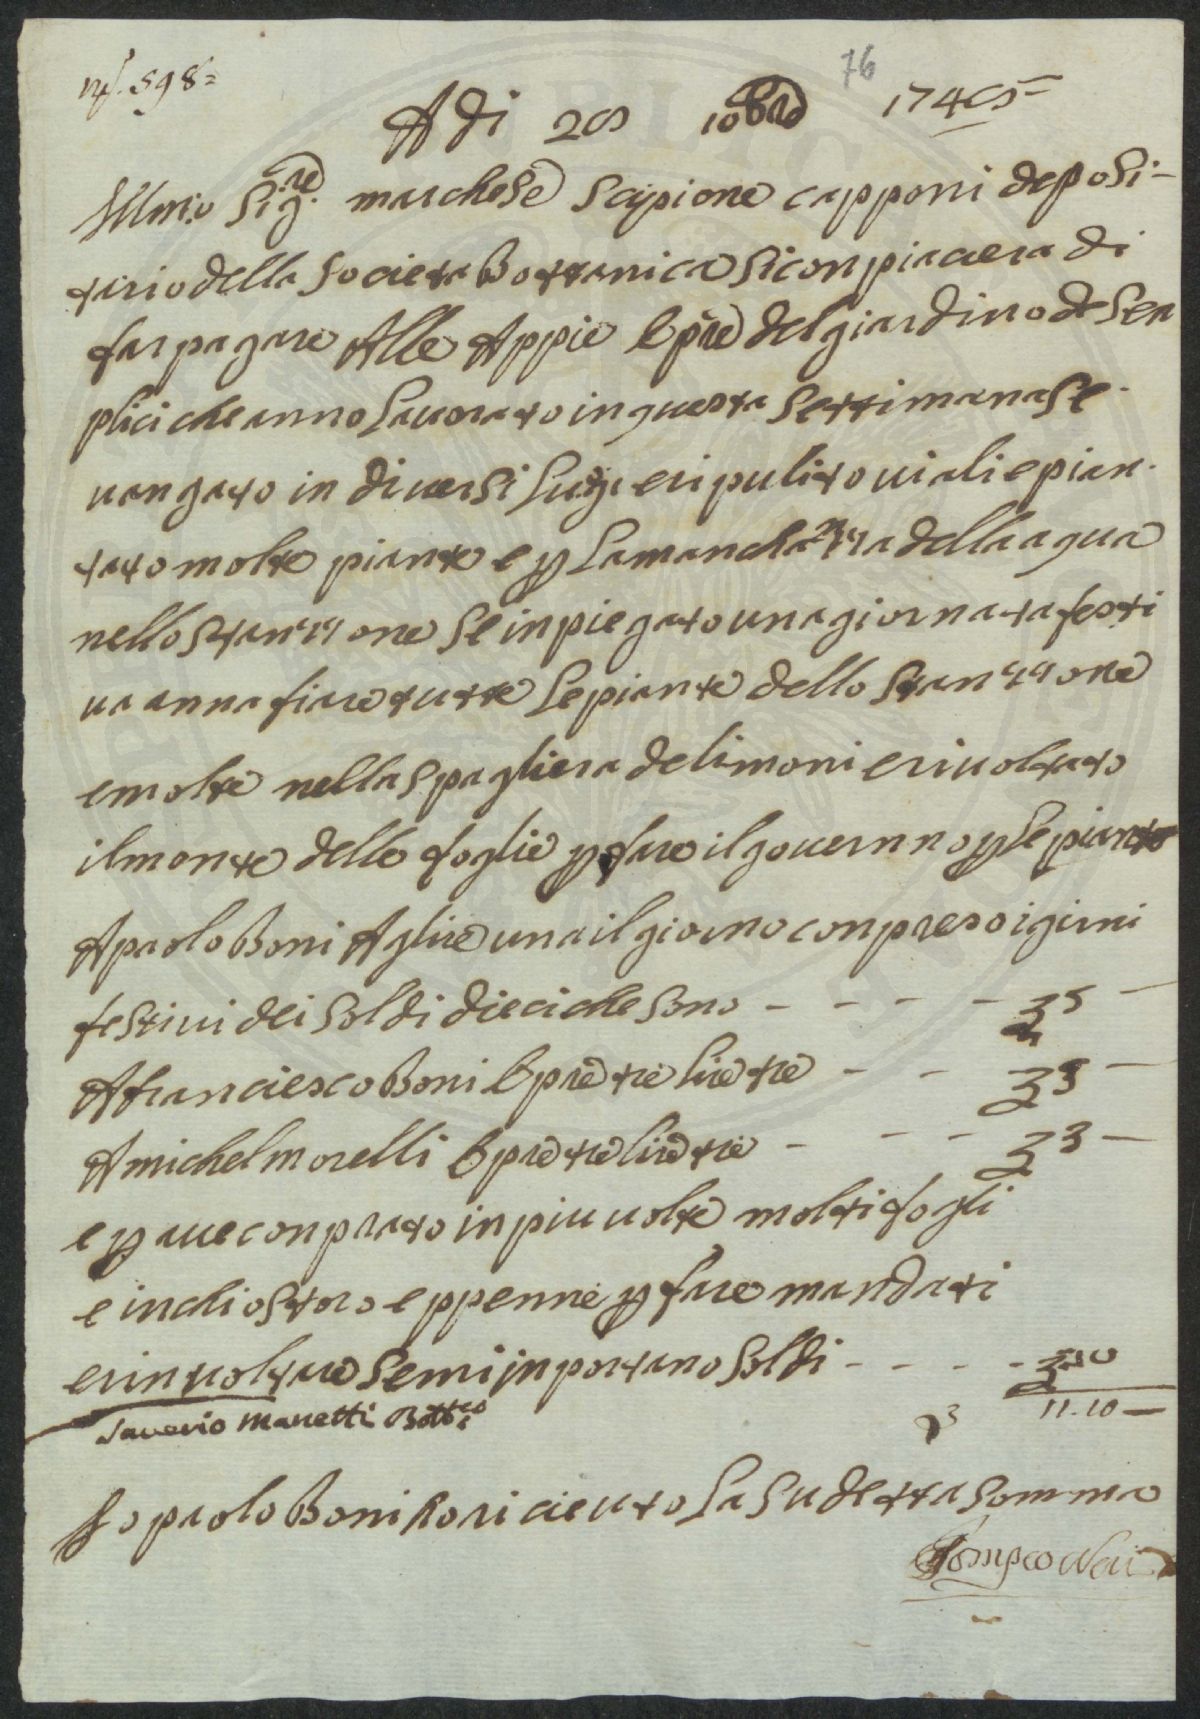 N.º 598=
76
A di 20 10bre 1745
Illmo Sigre marchese Scipione capponi deposi-
tario della Societa Bottanica Si conpiacera di
far pagare Alle Appie Opre del giardino de Sen
plici che anno Lauorato in questa Settimana Se
uangato in diuersi Lugi e ripulito uiali e pian-
tato molte piante e p La manchanzza della agua
nello Stanzzone Se inpiegato una giornata festi
ua annafiare tutte Le piante dello Stanzzone
e molte nella Spagliera de limoni e riuoltato
il monte delle foglie p fare il gouernno p Le piante
A paolo Boni A lire una il giorno conpreso i giorni
festiui dei Soldi dieci che Sono - - - - £ 5 -
A franciesco Boni Opre tre lire tre - - £ 3 -
A michel morelli Opre tre lire tre - - - £ 3 -
e p aue conprato in piu uolte molti fogli
e inchiostoro e ppenne p fare mandati
e rinuoltare Semi inportano Soldi - - - - £ -10
Saverio Manetti Bottco
3 11.10 —
Io paolo Boni ho riceuto La Sudetta Somma
Pompeo Neri